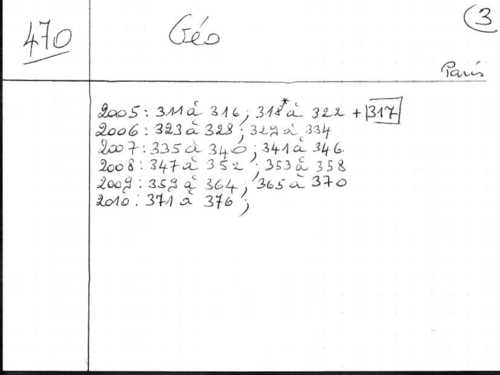 3
470
Géo
Paris
2005: 311 à 316; 318* à 322 + 317
2006: 323 à 328; 329 à 334
2007: 335 à 340; 341 à 346
2008: 347 à 352; 353 à 358
2009: 359 à 364; 365 à 370
2010: 371 à 376;